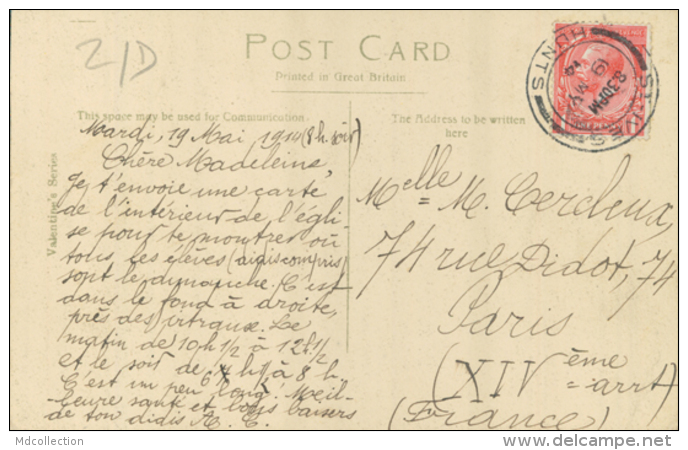 2/D
POST CARD
Printed in Great Britain
This space may be used for Communication
The Address to be written
here
Valentine's Series
ST IVES
HUNTS
8.30PM
19 MY
14
Mardi, 19 Mai 1914 (8h. soir)
Chère Madeleine,
Je t'envoie une carte
de l'intérieur de l'égli-
se pour te montrer où
tous les élèves (didis compris)
sont le dimanche. C'est
dans le fond à droite,
près des vitraux. Le
matin de 10h 1/2 à 12h. 1/2
et le soir de à 8 h.
C'est un peu long! Meil-
leure santé et bons baisers
de ton didis
Melle M. Cerdeux,
74 rue Didot, 74
Paris
(XIVème arrt)
(France)
Mdcollection
http://www.delcampe.net